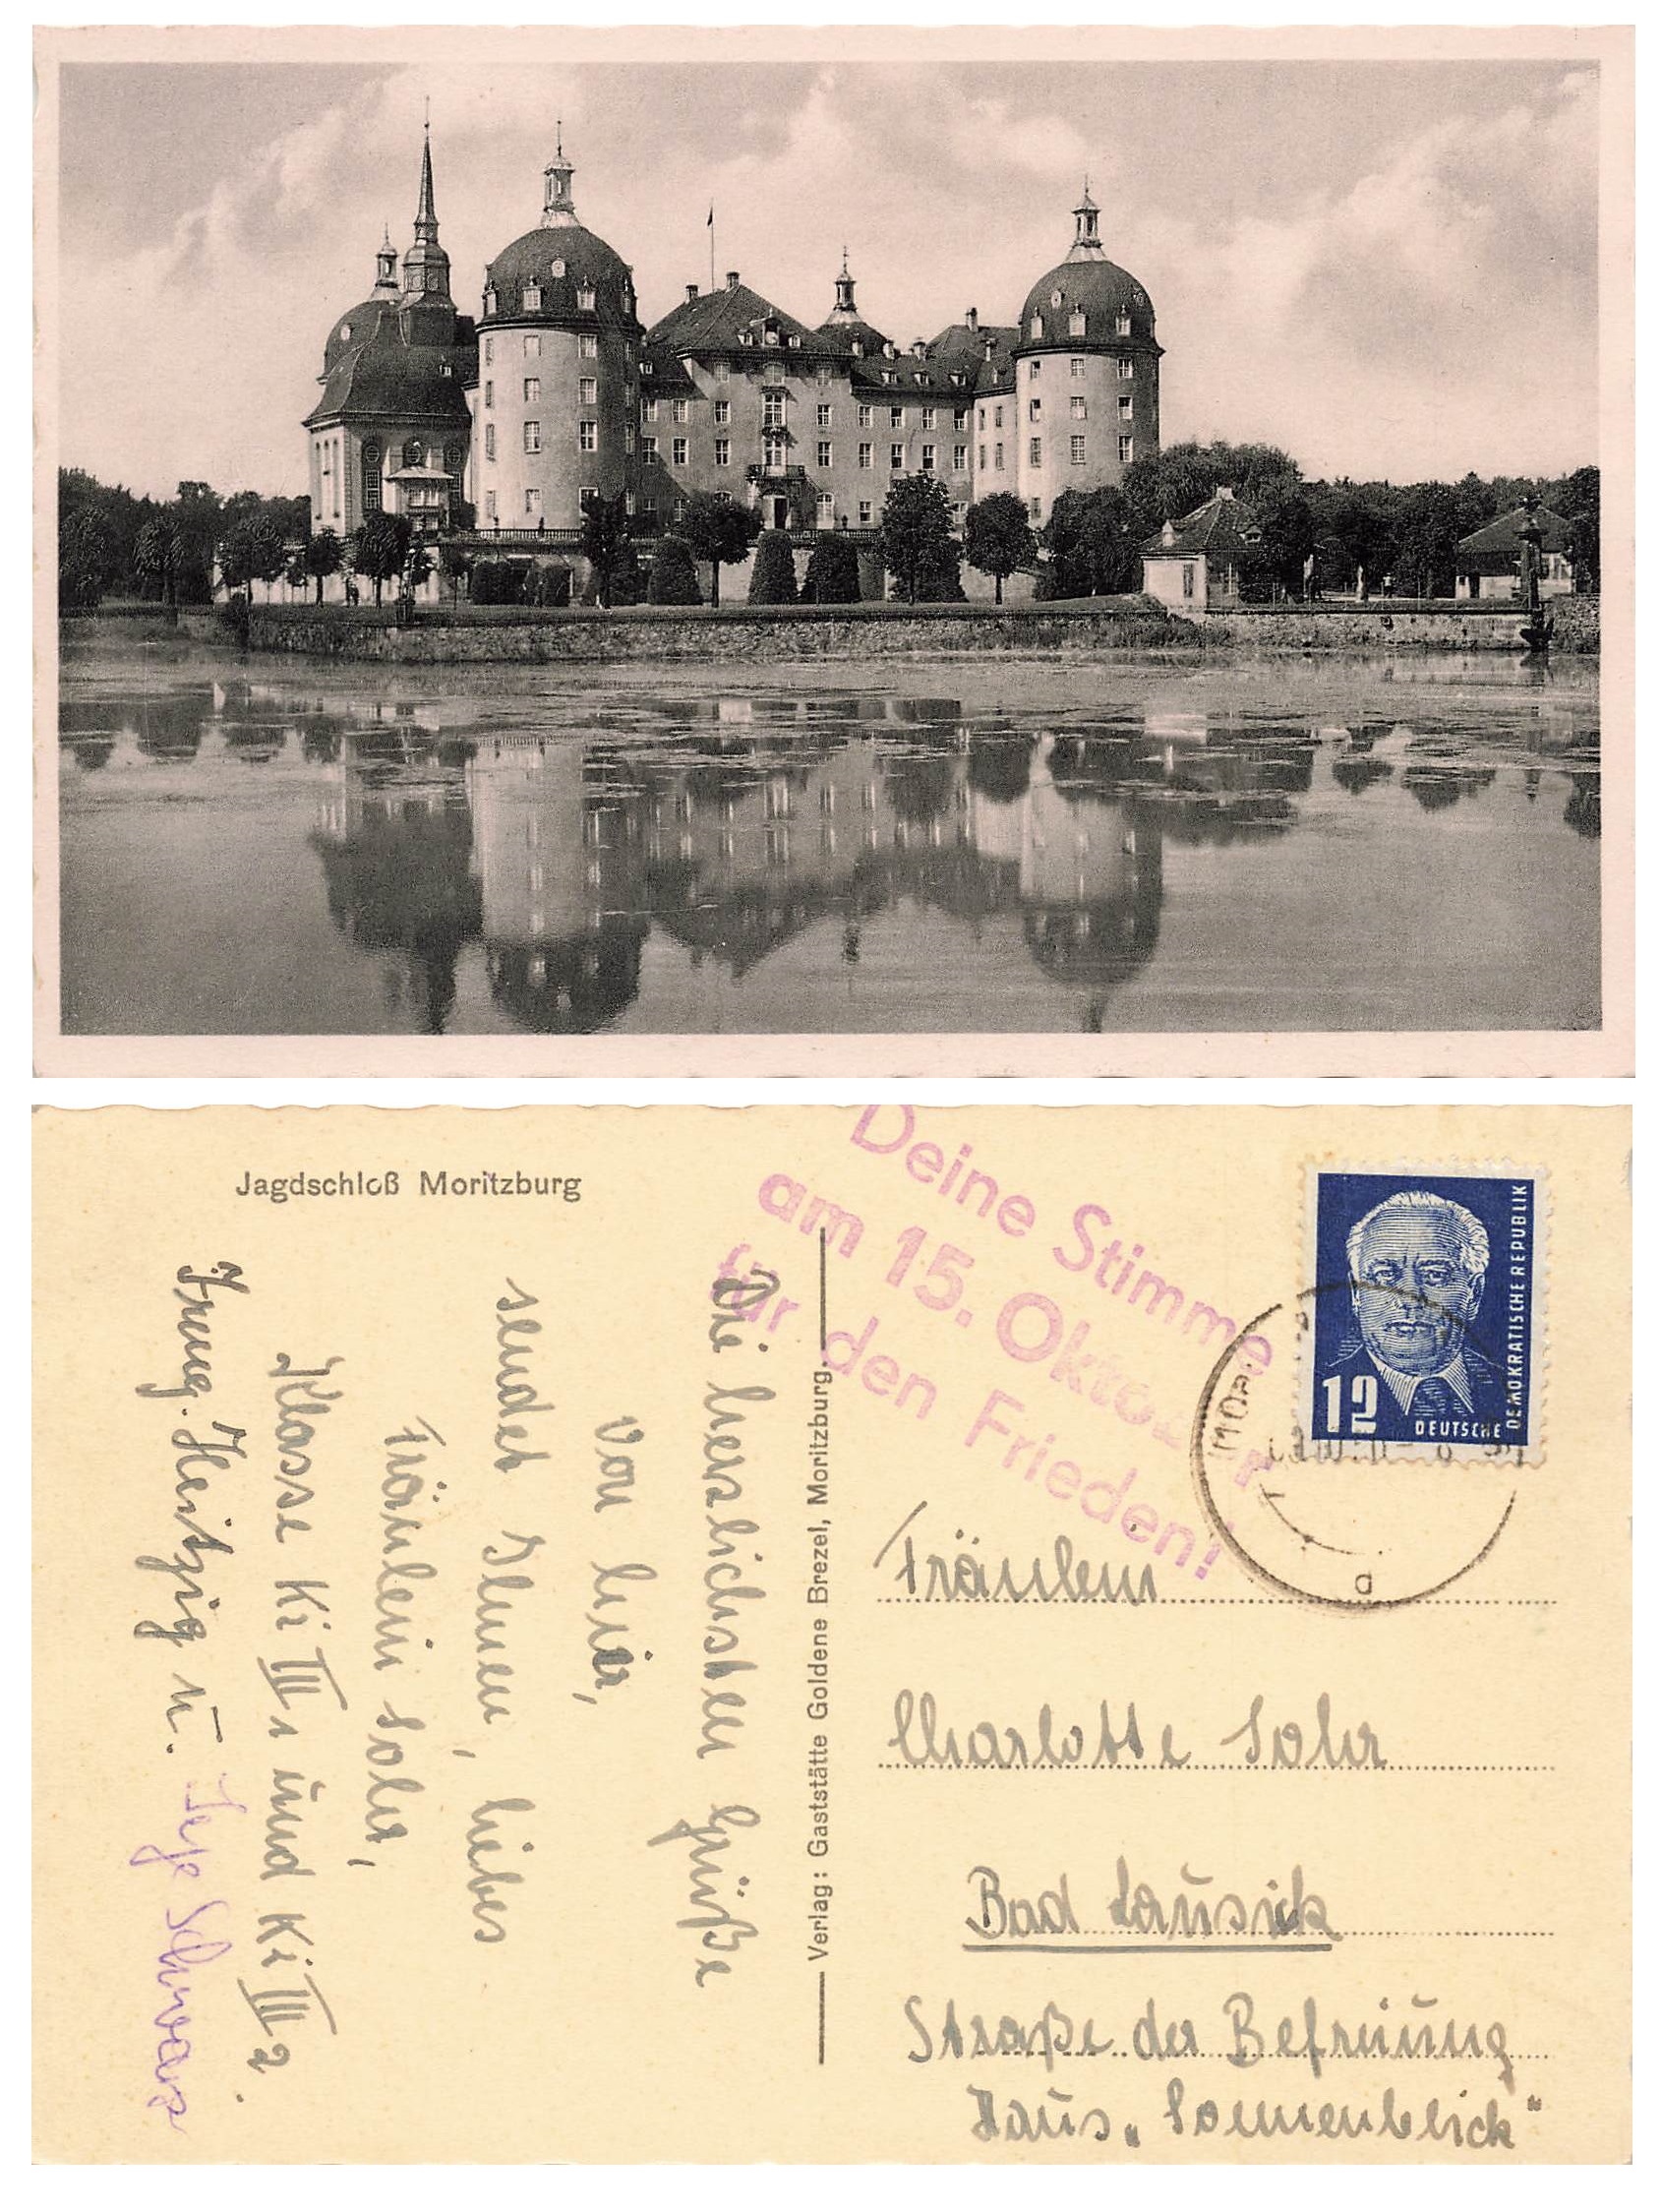 Jagdschloß Moritzburg
Deine Stimme
am 15. Oktober
für den Frieden!
12
DEUTSCHE
DEMOKRATISCHE REPUBLIK
a
Die herzlichsten Grüße
von hier,
sendet Ihnen, liebes
Fräulein Sohr,
Klasse Ki III 1 und Ki III 2.
Irmg. u. Schwarz
Verlag: Gaststätte Goldene Brezel, Moritzburg.
Fräulein
Charlotte Sohr
Bad Lausick
Straße der Befreiung
Haus „Sonnenblick“